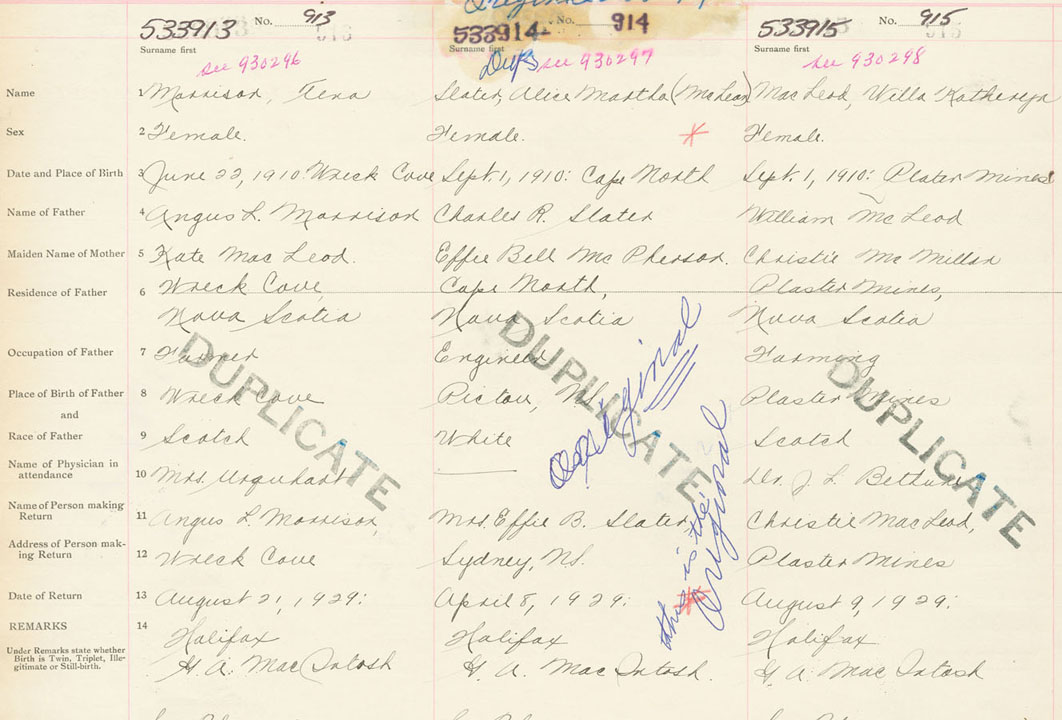 533913 No. 913
533914 No. 914
533915 No. 915
Surname first
Surname first
Surname first
see 930296
Dup see 930297
see 930298
Name 1 Morrison, Tena
Slater, Alice Martha (McLean)
MacLeod, Willa Katheryn
Sex 2 Female.
Female.
Female.
Date and Place of Birth 3 June 22, 1910: Wreck Cove
Sept. 1, 1910: Cape North
Sept. 1, 1910: Plater Mines
Name of Father 4 Angus L. Morrison
Charles R. Slater
William McLeod
Maiden Name of Mother 5 Kate Mac Leod.
Effie Bell Mc Pherson.
Christie Mc Millan
Residence of Father 6 Wreck Cove,
Nova Scotia
Cape North,
Nova Scotia
Plaster Mines,
Nova Scotia
Occupation of Father 7 Farmer
Engineer
Farming
Place of Birth of Father 8 Wreck Cove
Pictou, N.S.
Plaster Mines
and
Race of Father 9 Scotch
White
Scotch
Name of Physician in
attendance 10 Mrs. Urquhart
Dr. J. L. Bethune
Name of Person making
Return 11 Angus L. Morrison,
Mrs. Effie B. Slater,
Christie MacLeod,
Address of Person mak-
ing Return 12 Wreck Cove
Sydney, N.S.
Plaster Mines
Date of Return 13 August 21, 1929:
April 8, 1929:
August 9, 1929:
REMARKS 14
Under Remarks state whether
Birth is Twin, Triplet, Ille-
gitimate or Still-birth.
Halifax
G. A. MacIntosh
Halifax
G. A. MacIntosh.
Halifax
G. A. MacIntosh
DUPLICATE
DUPLICATE
DUPLICATE
this is the
Original